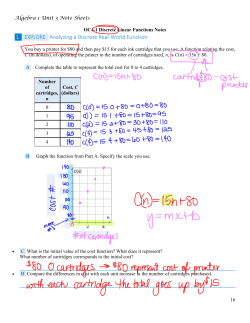 Algebra 1 Unit 5 Note Sheets
OC 5.1 Discrete Linear Functions Notes
EXPLORE Analyzing a Discrete Real-World Function
You buy a printer for $80 and then pay $15 for each ink cartridge that you use. A function relating the cost,
C (in dollars), of operating the printer to the number of cartridges used, n, is C(n) = 15n + 80.
A Complete the table to represent the total cost for 0 to 4 cartridges.
C(n)=15n+80
cartridges cost
printer
Number of cartridges, n
Cost, C (dollars)
0 80 C(0) = 15·0+80=0+80=80
1 95 C(1) = 15·1+80=15+80=95
2 110 C(2) = 15·2+80=30+80=110
3 125 C(3) = 15·3+80=45+80=125
4 140 C(4) = 15·4+80=60+80=140
B Graph the function from Part A. Specify the scale you use.
C(n)
C(n)=15n+80
y=mx+b
# of cartridges
C What is the initial value of the cost function? What does it represent?
What number of cartridges corresponds to the initial cost?
$80 0 cartridges → $80 represent cost of printer
with each cartridge the total goes up by $15
16